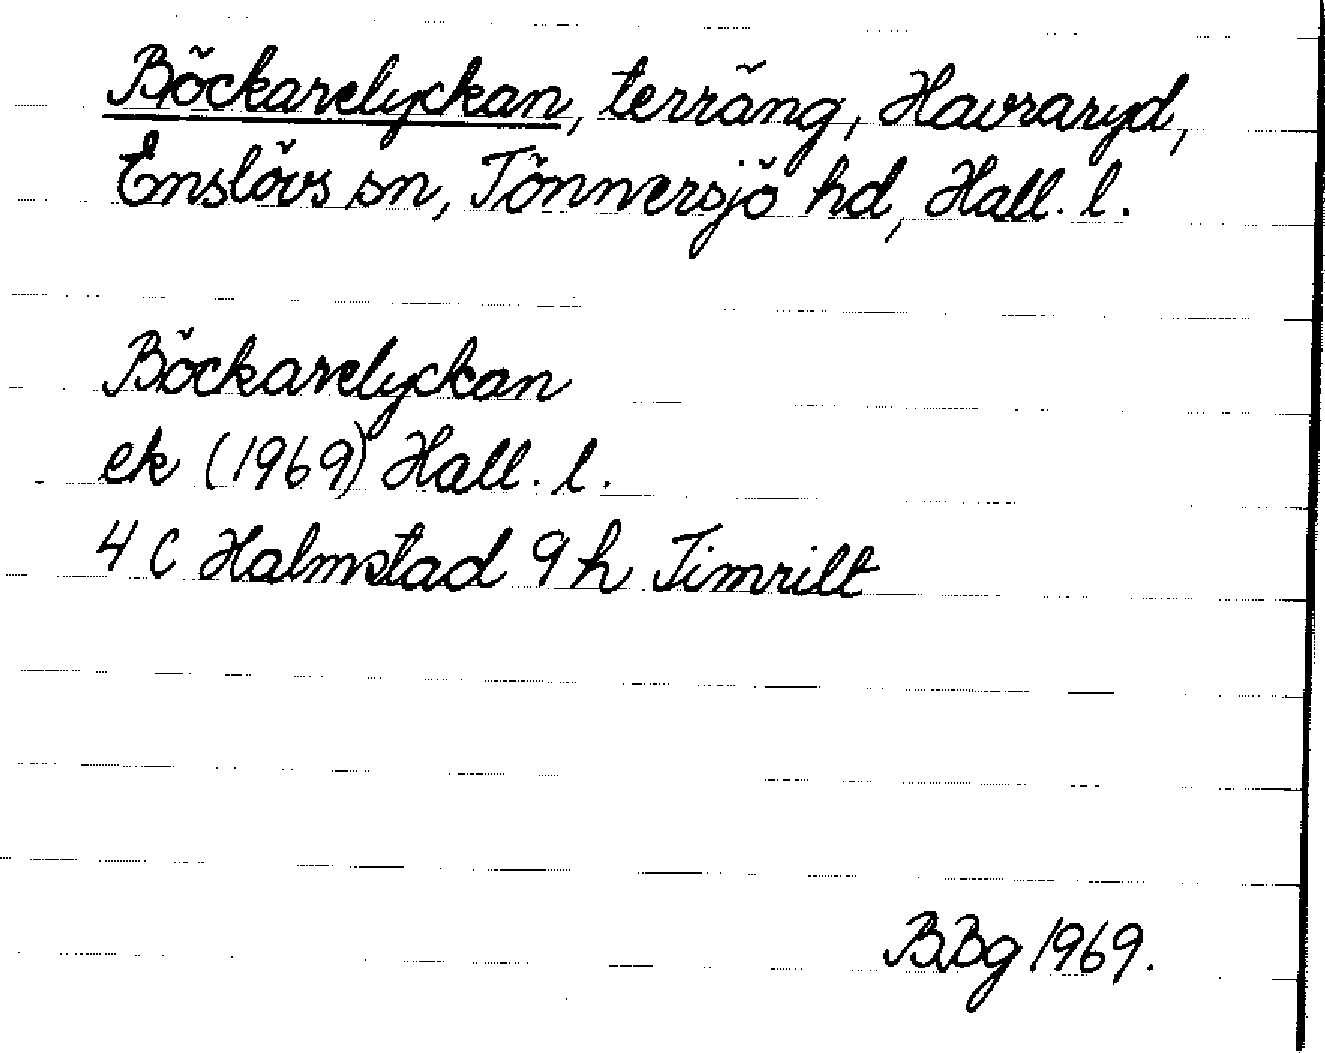 Böckarelyckan, terräng, Havraryd,
Enslövs sn, Tönnersjö hd, Hall. l.
Böckarelyckan
ek (1969) Hall. l.
4 C Halmstad 9 h Timrilt
BBg 1969.